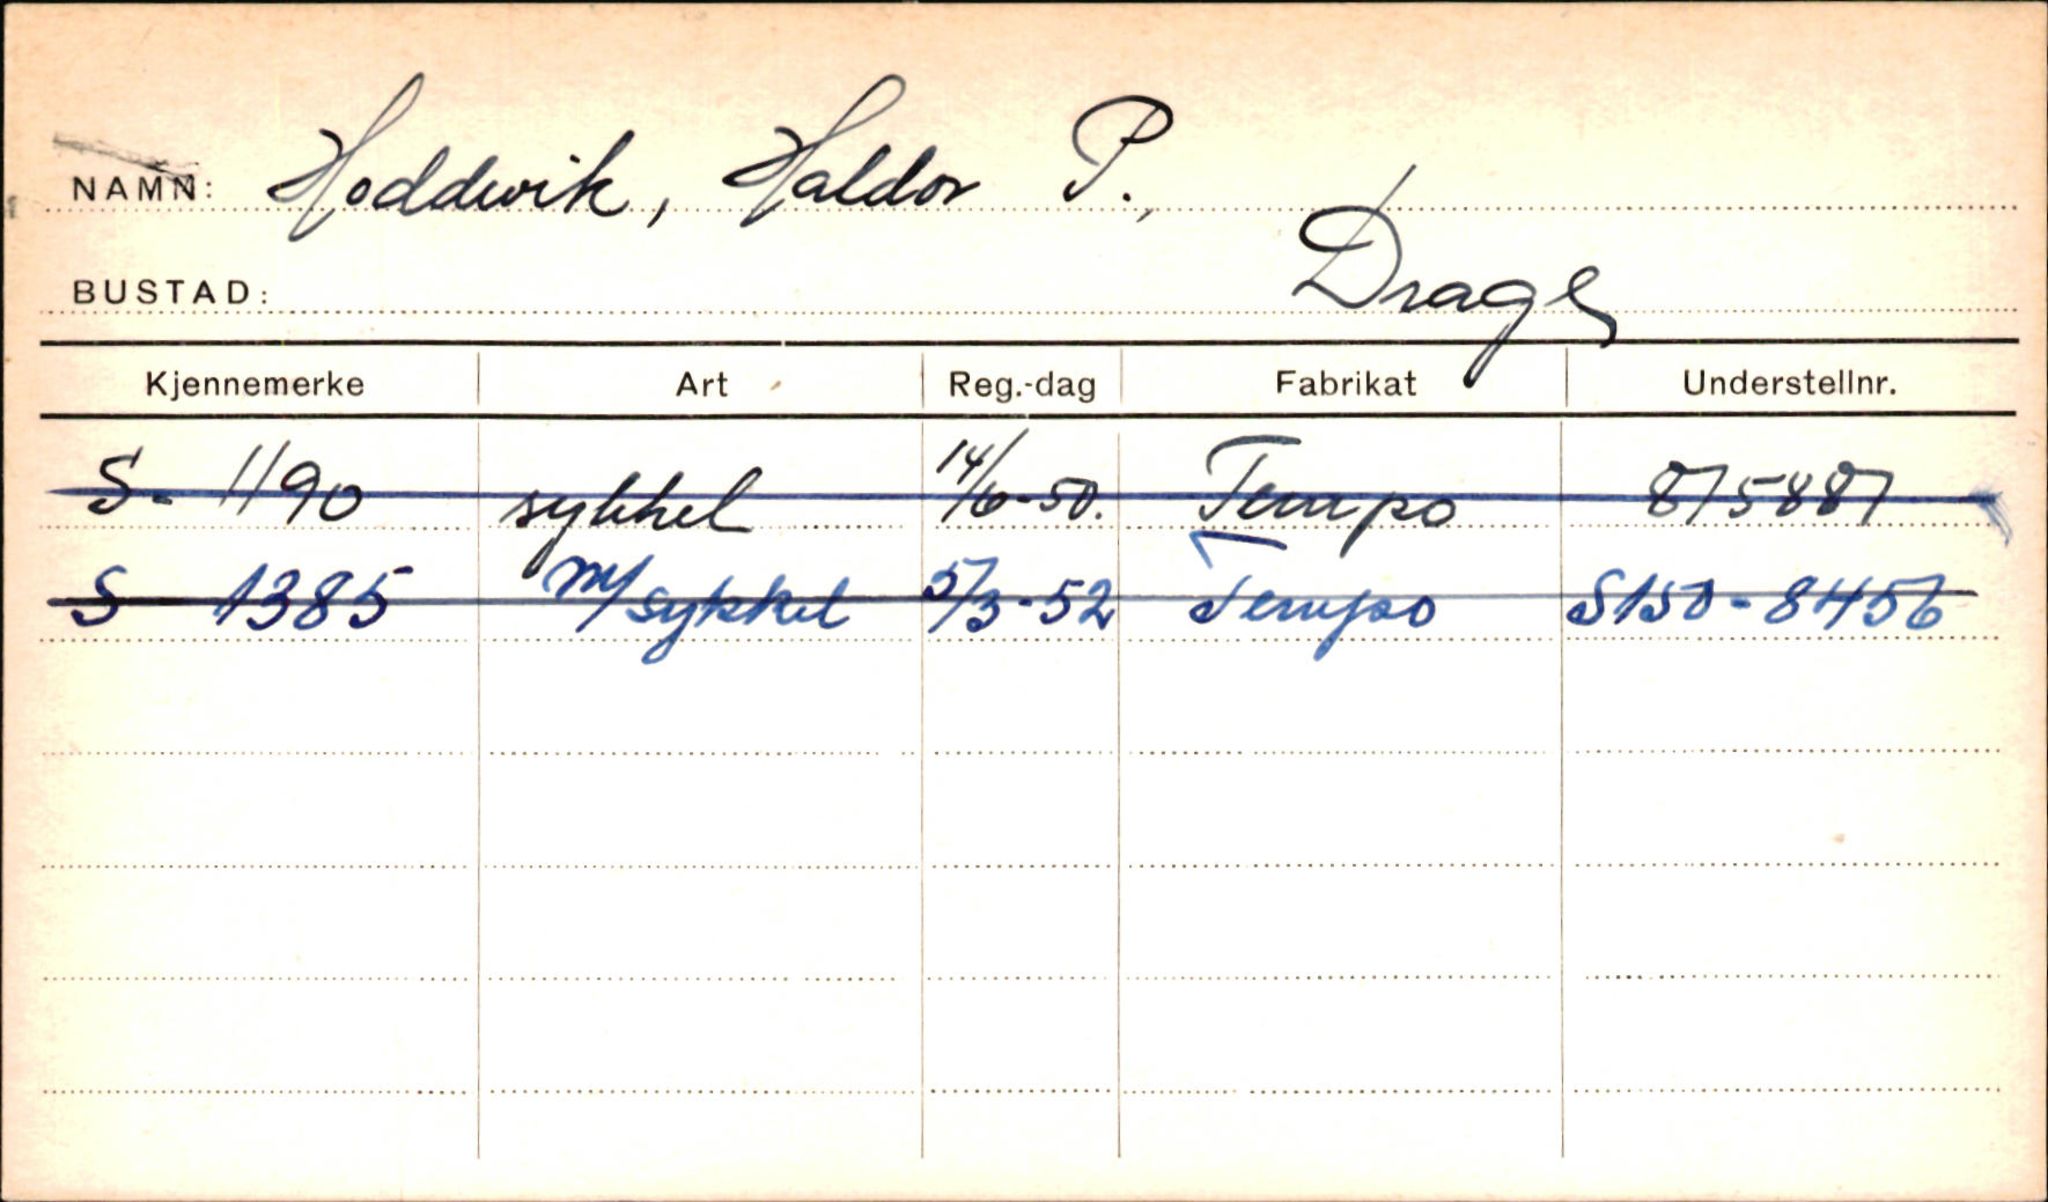 NAMN: Hoddevik, Haldor P.,
BUSTAD: Drage
Kjennemerke Art Reg.-dag Fabrikat Understellnr.
S- 1190 sykkel 14/6-50. Tempo 875887
S 1385 m/sykkel 5/3-52 Tempo S150-8456